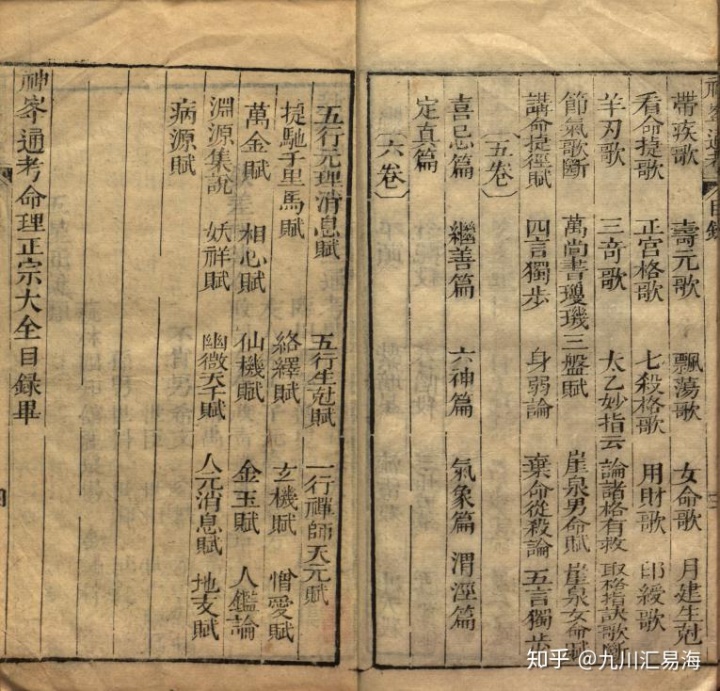 帶疾歌 壽元歌 飄蕩歌 女命歌 月建生尅
看命捷歌 正官格歌 七殺格歌 用財歌 印綬歌
羊刃歌 三奇歌 太乙妙指云 論諸格有救 取務指訣歌斷
節氣歌斷 萬尚書瓊璣三盤賦 崖泉男命賦 崖泉女命賦
講命捷徑賦 四言獨步 身弱論 棄命從殺論 五言獨步
五卷
喜忌篇 繼善篇 六神篇 氣象篇 渭涇篇
定真篇
六卷
五行元理消息賦 五行生尅賦 一行禪師天元賦
捷馳千里馬賦 絡繹賦 玄機賦 憎愛賦
萬金賦 相心賦 仙機賦 金玉賦 人鑑論
淵源集說 妖祥賦 幽微天干賦 人元消息賦 地支賦
病源賦
神峯通考命理正宗大全目錄畢
知乎 @九川汇易海